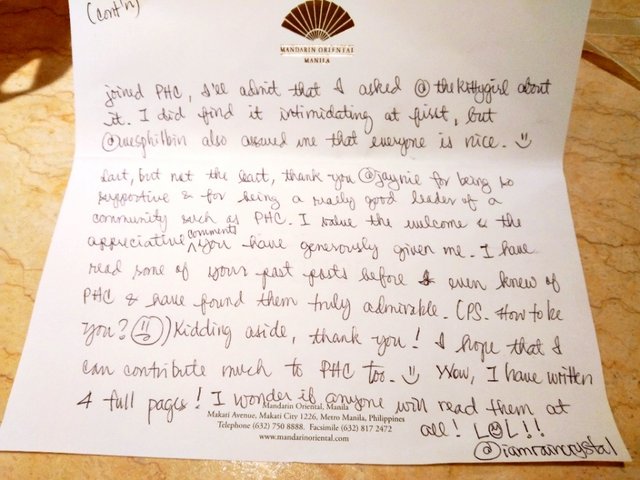 (cont'n)
MANDARIN ORIENTAL
MANILA
joined PHC, I'll admit that I asked @thekittygirl about
it. I did find it intimidating at first, but
@wesphilbin also assured me that everyone is nice. :)
Last, but not the last, thank you @jaynie for being so
supportive & for being a really good leader of a
community such as PHC. I value the welcome & the
appreciative comments you have generously given me. I have
read some of your past posts before I even knew of
PHC & have found them truly admirable. (PS. How to be
you? ☺) Kidding aside, thank you! I hope that I
can contribute much to PHC too. :) Wow, I have written
4 full pages! I wonder if anyone will read them at
all! LOL!!
@iamraincrystal
Mandarin Oriental, Manila
Makati Avenue, Makati City 1226, Metro Manila, Philippines
Telephone (632) 750 8888. Facsimile (632) 817 2472
www.mandarinoriental.com